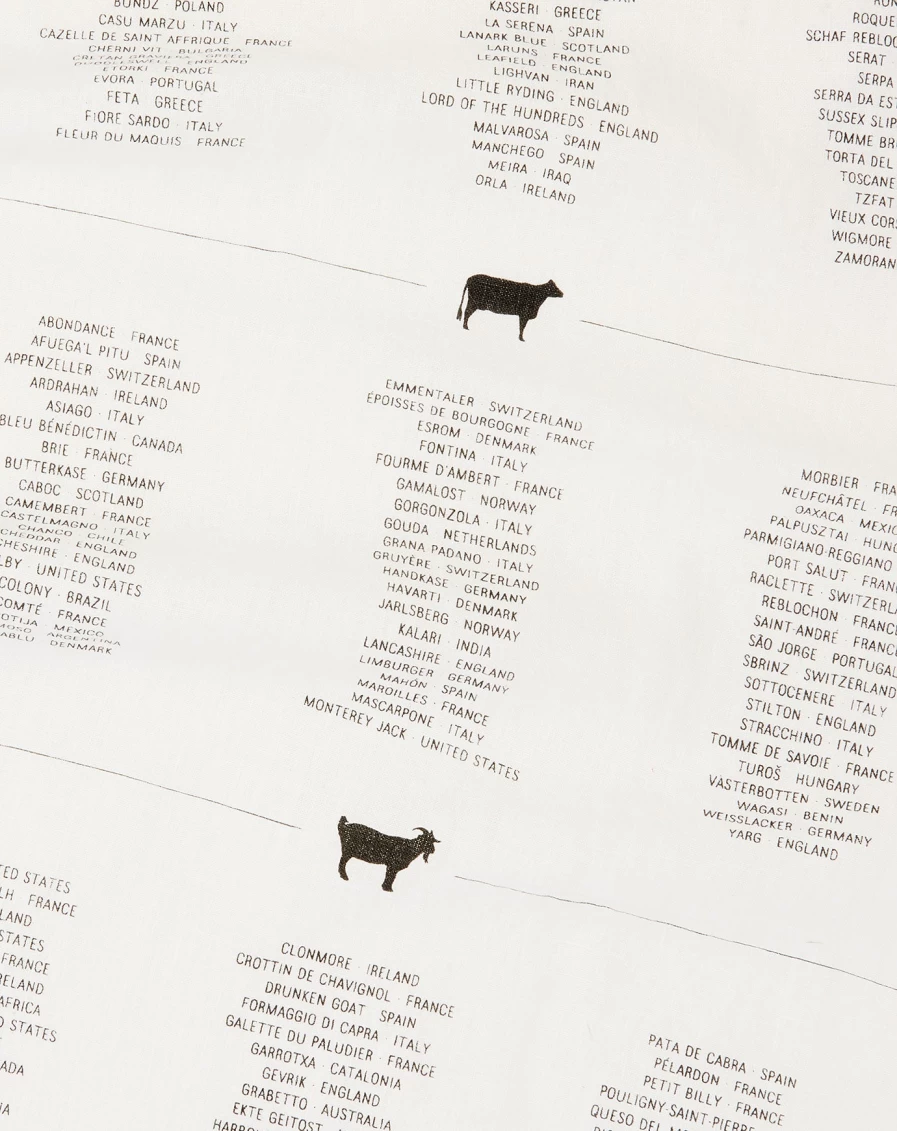 BUNDZ · POLAND
CASU MARZU · ITALY
CAZELLE DE SAINT AFFRIQUE · FRANCE
CHERNI VIT · BULGARIA
CRETAN GRAVIERA · GREECE
DUDDLESWELL · ENGLAND
ETORKI · FRANCE
EVORA · PORTUGAL
FETA · GREECE
FIORE SARDO · ITALY
FLEUR DU MAQUIS · FRANCE
KASSERI · GREECE
LA SERENA · SPAIN
LANARK BLUE · SCOTLAND
LARUNS · FRANCE
LEAFIELD · ENGLAND
LIGHVAN · IRAN
LITTLE RYDING · ENGLAND
LORD OF THE HUNDREDS · ENGLAND
MALVAROSA · SPAIN
MANCHEGO · SPAIN
MEIRA · IRAQ
ORLA · IRELAND
ROQUE
SCHAF REBLOC
SERAT ·
SERPA
SERRA DA EST
SUSSEX SLIP
TOMME BR
TORTA DEL
TOSCANE
TZFAT
VIEUX COR
WIGMORE
ZAMORAN
ABONDANCE · FRANCE
AFUEGA'L PITU · SPAIN
APPENZELLER · SWITZERLAND
ARDRAHAN · IRELAND
ASIAGO · ITALY
BLEU BÉNÉDICTIN · CANADA
BRIE · FRANCE
BUTTERKASE · GERMANY
CABOC · SCOTLAND
CAMEMBERT · FRANCE
CASTELMAGNO · ITALY
CHANCO · CHILE
CHEDDAR · ENGLAND
CHESHIRE · ENGLAND
LBY · UNITED STATES
COLONY · BRAZIL
COMTÉ · FRANCE
OTIJA · MEXICO
MOSO · ARGENTINA
ABLU · DENMARK
EMMENTALER · SWITZERLAND
ÉPOISSES DE BOURGOGNE · FRANCE
ESROM · DENMARK
FONTINA · ITALY
FOURME D'AMBERT · FRANCE
GAMALOST · NORWAY
GORGONZOLA · ITALY
GOUDA · NETHERLANDS
GRANA PADANO · ITALY
GRUYÈRE · SWITZERLAND
HANDKASE · GERMANY
HAVARTI · DENMARK
JARLSBERG · NORWAY
KALARI · INDIA
LANCASHIRE · ENGLAND
LIMBURGER · GERMANY
MAHÓN · SPAIN
MAROILLES · FRANCE
MASCARPONE · ITALY
MONTEREY JACK · UNITED STATES
MORBIER · FRA
NEUFCHÂTEL · FR
OAXACA · MEXIC
PALPUSZTAI · HUNG
PARMIGIANO-REGGIANO
PORT SALUT · FRANC
RACLETTE · SWITZERLA
REBLOCHON · FRANCE
SAINT-ANDRÉ · FRANC
SÃO JORGE · PORTUGAL
SBRINZ · SWITZERLAND
SOTTOCENERE · ITALY
STILTON · ENGLAND
STRACCHINO · ITALY
TOMME DE SAVOIE · FRANCE
TUROŠ · HUNGARY
VÄSTERBOTTEN · SWEDEN
WAGASI · BENIN
WEISSLACKER · GERMANY
YARG · ENGLAND
TED STATES
LH · FRANCE
LAND
STATES
FRANCE
RELAND
AFRICA
D STATES
ADA
CLONMORE · IRELAND
CROTTIN DE CHAVIGNOL · FRANCE
DRUNKEN GOAT · SPAIN
FORMAGGIO DI CAPRA · ITALY
GALETTE DU PALUDIER · FRANCE
GARROTXA · CATALONIA
GEVRIK · ENGLAND
GRABETTO · AUSTRALIA
EKTE GEITOST ·
PATA DE CABRA · SPAIN
PÉLARDON · FRANCE
PETIT BILLY · FRANCE
POULIGNY-SAINT-PIERRE
QUESO DEL